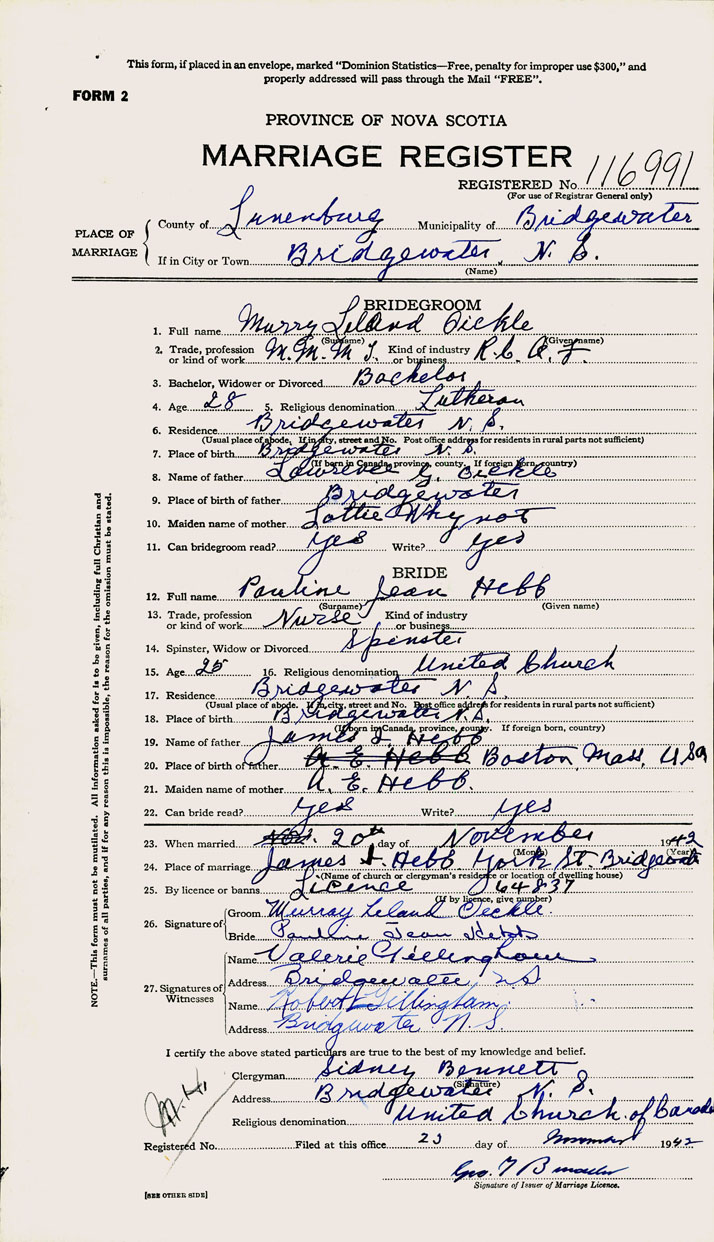 This form, if placed in an envelope, marked "Dominion Statistics—Free, penalty for improper use $300," and
properly addressed will pass through the Mail "FREE".
FORM 2
PROVINCE OF NOVA SCOTIA
MARRIAGE REGISTER
REGISTERED No. 116991
(For use of Registrar General only)
PLACE OF MARRIAGE
County of Lunenburg Municipality of Bridgewater
If in City or Town Bridgewater, N. S.
(Name)
BRIDEGROOM
1. Full name Murry Leland Oickle
(Surname) (Given name)
2. Trade, profession or kind of work M.M.M.T. Kind of industry or business R.C.A.F.
3. Bachelor, Widower or Divorced Bachelor
4. Age 28 5. Religious denomination Lutheran
6. Residence Bridgewater N. S.
(Usual place of abode. If in city, street and No. Post office address for residents in rural parts not sufficient)
7. Place of birth Bridgewater N. S.
(If born in Canada, province, county. If foreign born, country)
8. Name of father Lawrence G. Oickle
9. Place of birth of father Bridgewater
10. Maiden name of mother Lottie Whynot
11. Can bridegroom read? yes Write? yes
BRIDE
12. Full name Pauline Jean Hebb
(Surname) (Given name)
13. Trade, profession or kind of work Nurse Kind of industry or business
14. Spinster, Widow or Divorced Spinster
15. Age 25 16. Religious denomination United Church
17. Residence Bridgewater N. S.
(Usual place of abode. If in city, street and No. Post office address for residents in rural parts not sufficient)
18. Place of birth Bridgewater N.S.
(If born in Canada, province, county. If foreign born, country)
19. Name of father James I. Hebb
20. Place of birth of father A. E. Hebb Boston, Mass, USA
21. Maiden name of mother A. E. Hebb.
22. Can bride read? yes Write? yes
23. When married Nov. 20th day of November 1942
(Month) (Year)
24. Place of marriage James I. Hebb York St. Bridgewater
(Name of church or clergyman's residence or location of dwelling house)
25. By licence or banns Licence 64837
(If by licence, give number)
26. Signature of
Groom Murray Leland Oickle.
Bride Pauline Jean Hebb
27. Signatures of Witnesses
Name Valerie Gillingham
Address Bridgewater, NS
Name Robert Gillingham
Address Bridgewater N. S
I certify the above stated particulars are true to the best of my knowledge and belief.
Clergyman Sidney Bennett
(Signature)
Address Bridgewater N. S.
Religious denomination United Church of Canada
Registered No. Filed at this office 23 day of 1942
Signature of Issuer of Marriage Licence.
[SEE OTHER SIDE]
NOTE.—This form must not be mutilated. All information asked for is to be given, including full Christian and
surnames of all parties, and if for any reason this is impossible, the reason for the omission must be stated.